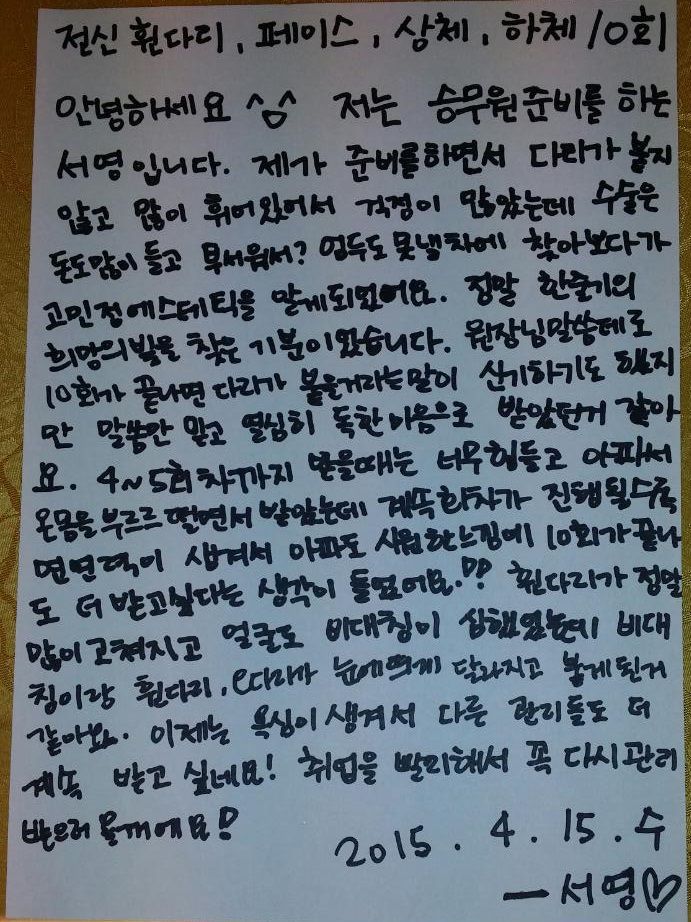 전신 휜다리, 페이스, 상체, 하체 10회
안녕하세요 ^^ 저는 승무원준비를 하는
서영입니다. 제가 준비를하면서 다리가 붙지
않고 많이 휘어있어서 걱정이 많았는데 수술은
돈도많이 들고 무서워서? 엄두도못낼차에 찾아보다가
고민정에스테틱을 알게되었어요. 정말 한줄기의
희망의빛을 찾은 기분이였습니다. 원장님말씀데로
10회가 끝나면 다리가 붙을거라는말이 신기하기도 했지
만 말씀만 믿고 열심히 독한마음으로 받았던거 같아
요. 4~5회차까지 받을때는 너무힘들고 아파서
온몸을부르르떨면서 받았는데 계속회차가 진행될수록
면연력이 생겨서 아파도 시원한느낌에 10회가끝나
도 더 받고싶다는 생각이 들었어요. 휜다리가 정말
많이고쳐지고 얼굴도 비대칭이 심했었는데 비대
칭이랑 휜다리, 다리가 눈에띄게 달라지고 붙게된거
같아요. 이제는 욕심이생겨서 다른 관리들도 더
계속 받고 싶네요! 취업을 빨리해서 꼭 다시관리
받으러 올게에요!
2015. 4. 15. 수
- 서영♡